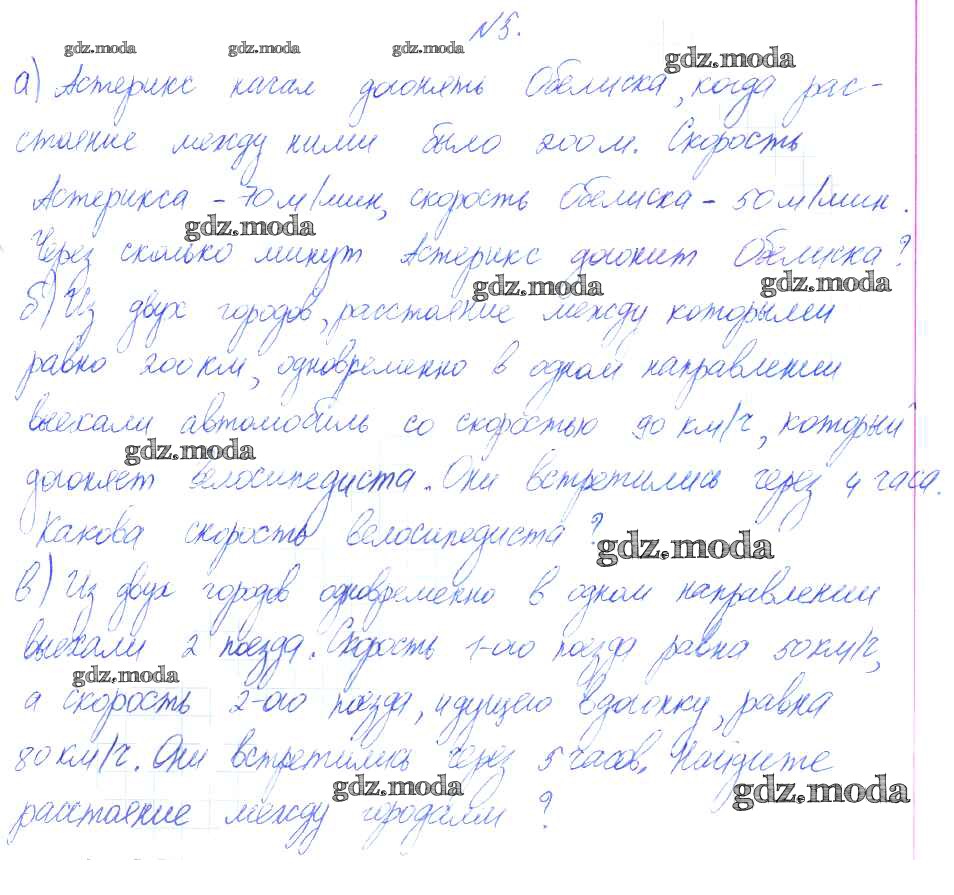 №5.
gdz.moda gdz.moda gdz.moda gdz.moda
а) Астерикс начал догонять Обелиска, когда рас-
стояние между ними было 200 м. Скорость
Астерикса - 70 м/мин, скорость Обелиска - 50 м/мин.
gdz.moda
Через сколько минут Астерикс догонит Обелиска?
gdz.moda gdz.moda
б) Из двух городов, расстояние между которыми
равно 200 км, одновременно в одном направлении
выехали автомобиль со скоростью 90 км/ч, который
gdz.moda
догоняет велосипедиста. Они встретились через 4 часа.
Какова скорость велосипедиста?
gdz.moda
в) Из двух городов одновременно в одном направлении
выехали 2 поезда. Скорость 1-ого поезда равна 50 км/ч,
gdz.moda
а скорость 2-ого поезда, идущего вдогонку, равна
80 км/ч. Они встретились через 5 часов. Найдите
gdz.moda gdz.moda
расстояние между городами?